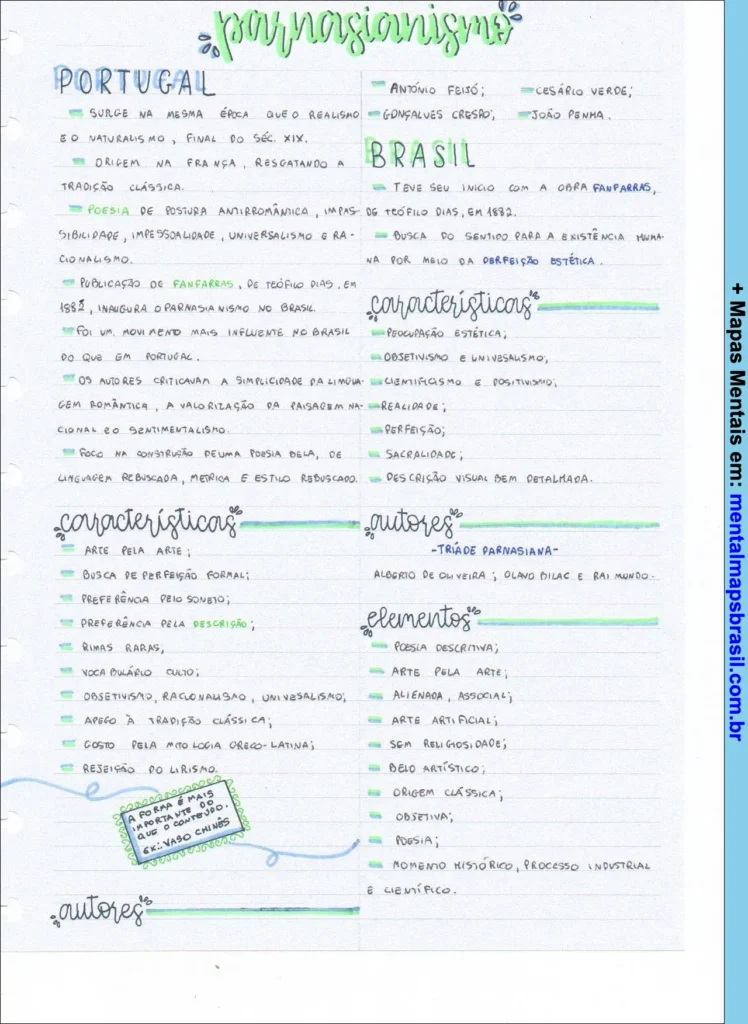 parnasianismo
PORTUGAL
SURGE NA MESMA ÉPOCA QUE O REALISMO
E O NATURALISMO, FINAL DO SÉC. XIX.
ORIGEM NA FRANÇA, RESGATANDO A
TRADIÇÃO CLÁSSICA.
POESIA DE POSTURA ANTIRROMÂNTICA, IMPAS-
SIBILIDADE, IMPESSOALIDADE, UNIVERSALISMO E RA-
CIONALISMO.
PUBLICAÇÃO DE FANFARRAS, DE TEÓFILO DIAS, EM
1882, INAUGURA O PARNASIANISMO NO BRASIL.
FOI UM MOVIMENTO MAIS INFLUENTE NO BRASIL
DO QUE EM PORTUGAL.
OS AUTORES CRITICAVAM A SIMPLICIDADE DA LINGUA-
GEM ROMÂNTICA, A VALORIZAÇÃO DA PAISAGEM NA-
CIONAL E O SENTIMENTALISMO.
FOCO NA CONSTRUÇÃO DE UMA POESIA BELA, DE
LINGUAGEM REBUSCADA, METRICA E ESTILO REBUSCADO.
características
ARTE PELA ARTE;
BUSCA DE PERFEIÇÃO FORMAL;
PREFERÊNCIA PELO SONETO;
PREFERÊNCIA PELA DESCRIÇÃO;
RIMAS RARAS,
VOCABULÁRIO CULTO;
OBJETIVISMO, RACIONALISMO, UNIVESALISMO;
APEGO À TRADIÇÃO CLÁSSICA;
GOSTO PELA MITOLOGIA GREGO-LATINA;
REJEIÇÃO DO LIRISMO.
A FORMA É MAIS
IMPORTANTE DO
QUE O CONTEÚDO.
EX.: VASO CHINÊS
autores
ANTÓNIO FEIJÓ; CESÁRIO VERDE;
GONÇALVES CRESPO; JOÃO PENHA.
BRASIL
TEVE SEU INÍCIO COM A OBRA FANFARRAS,
DE TEÓFILO DIAS, EM 1882.
BUSCA DO SENTIDO PARA A EXISTÊNCIA HUMA-
NA POR MEIO DA PERFEIÇÃO ESTÉTICA.
características
PEOCUPAÇÃO ESTÉTICA;
OBJETIVISMO E UNIVESALISMO;
CIENTIFICISMO E POSITIVISMO;
REALIDADE;
PERFEIÇÃO;
SACRALIDADE;
DESCRIÇÃO VISUAL BEM DETALHADA.
autores
-TRÍADE PARNASIANA-
ALBERTO DE OLIVEIRA; OLAVO BILAC E RAIMUNDO.
elementos
POESIA DESCRITIVA;
ARTE PELA ARTE;
ALIENADA, ASSOCIAL;
ARTE ARTIFICIAL;
SEM RELIGIOSIDADE;
BELO ARTÍSTICO;
ORIGEM CLÁSSICA;
OBJETIVA;
POESIA;
MOMENTO HISTÓRICO, PROCESSO INDUSTRIAL
E CIENTÍFICO.
+ Mapas Mentais em: mentalmapsbrasil.com.br